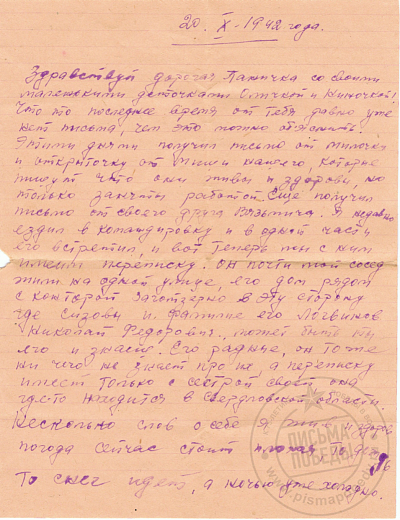 20. X - 1942 года.
Здравствуй дорогая Паничка со своими
маленькими деточками и Ниночкой!
Что то последнее время от тебя давно уже
нет письма, чем это можно объяснить.
Этими днями получил письмо от Милочки
и открыточку от Миши нашего, которые
пишут что они живы и здоровы, но
только заняты работой. Еще получил
письмо от своего друга. Я недавно
ездил в командировку и в одной части
его встретил, и вот теперь мы с ним
имеем переписку. Он почти мой сосед
жили на одной улице, его дом рядом
с конторой Заготзерно в эту сторону
где Сизовы и фамилие его Логвинов
Николай Федорович, может быть ты
его и знаешь. Его родные, он тоже
ни чего не знает про них, а переписку
имеет только с сестрой своей она
где-то находится в Свердловской области.
Несколько слов о себе я жив и здоров
погода сейчас стоит плохая, то
то снег идет, а ночью уже холодно.
ПИСЬМА
ПОБЕДЫ